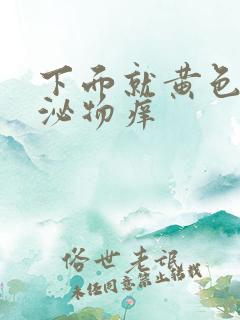 下而就黄色
泌物痒
俗世老讴
未经同意禁止转载